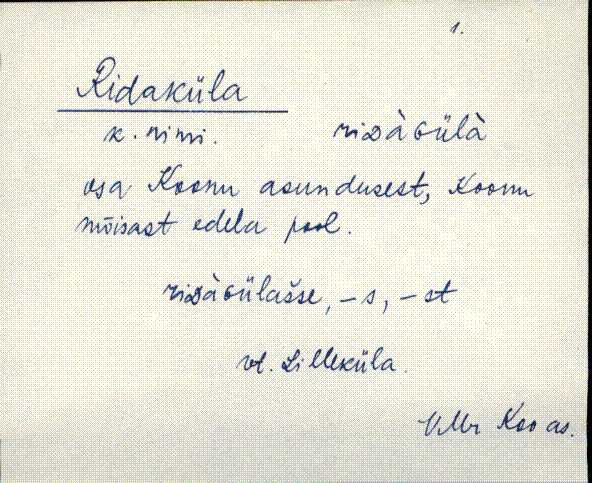 1.
Ridaküla
k. nimi. riᴅàɢülà
osa Koonu asundusest, Koonu
mõisast edela pool.
riᴅàɢülašse, -s, -st
vt. Lilleküla.
VMr Koo as.